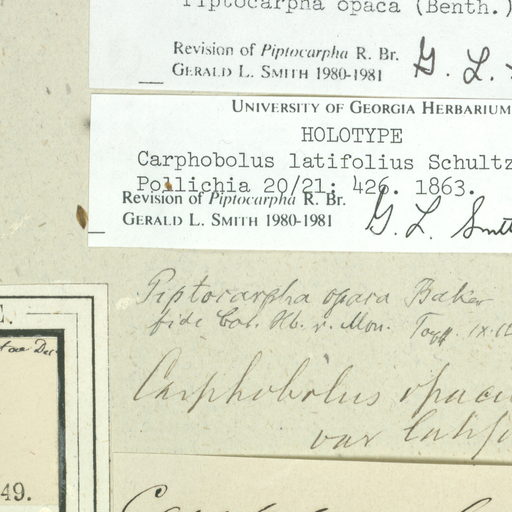 Piptocarpha opaca (Benth.)
Revision of Piptocarpha R. Br.
GERALD L. SMITH 1980-1981
G. L.
UNIVERSITY OF GEORGIA HERBARIUM
HOLOTYPE
Carphobolus latifolius Schultz
Pollichia 20/21: 426. 1863.
Revision of Piptocarpha R. Br.
GERALD L. SMITH 1980-1981
G. L. Smith
Piptocarpha opaca Baker
fide Hb. v. Mon.
Carphobolus opacu
var latifo
49.